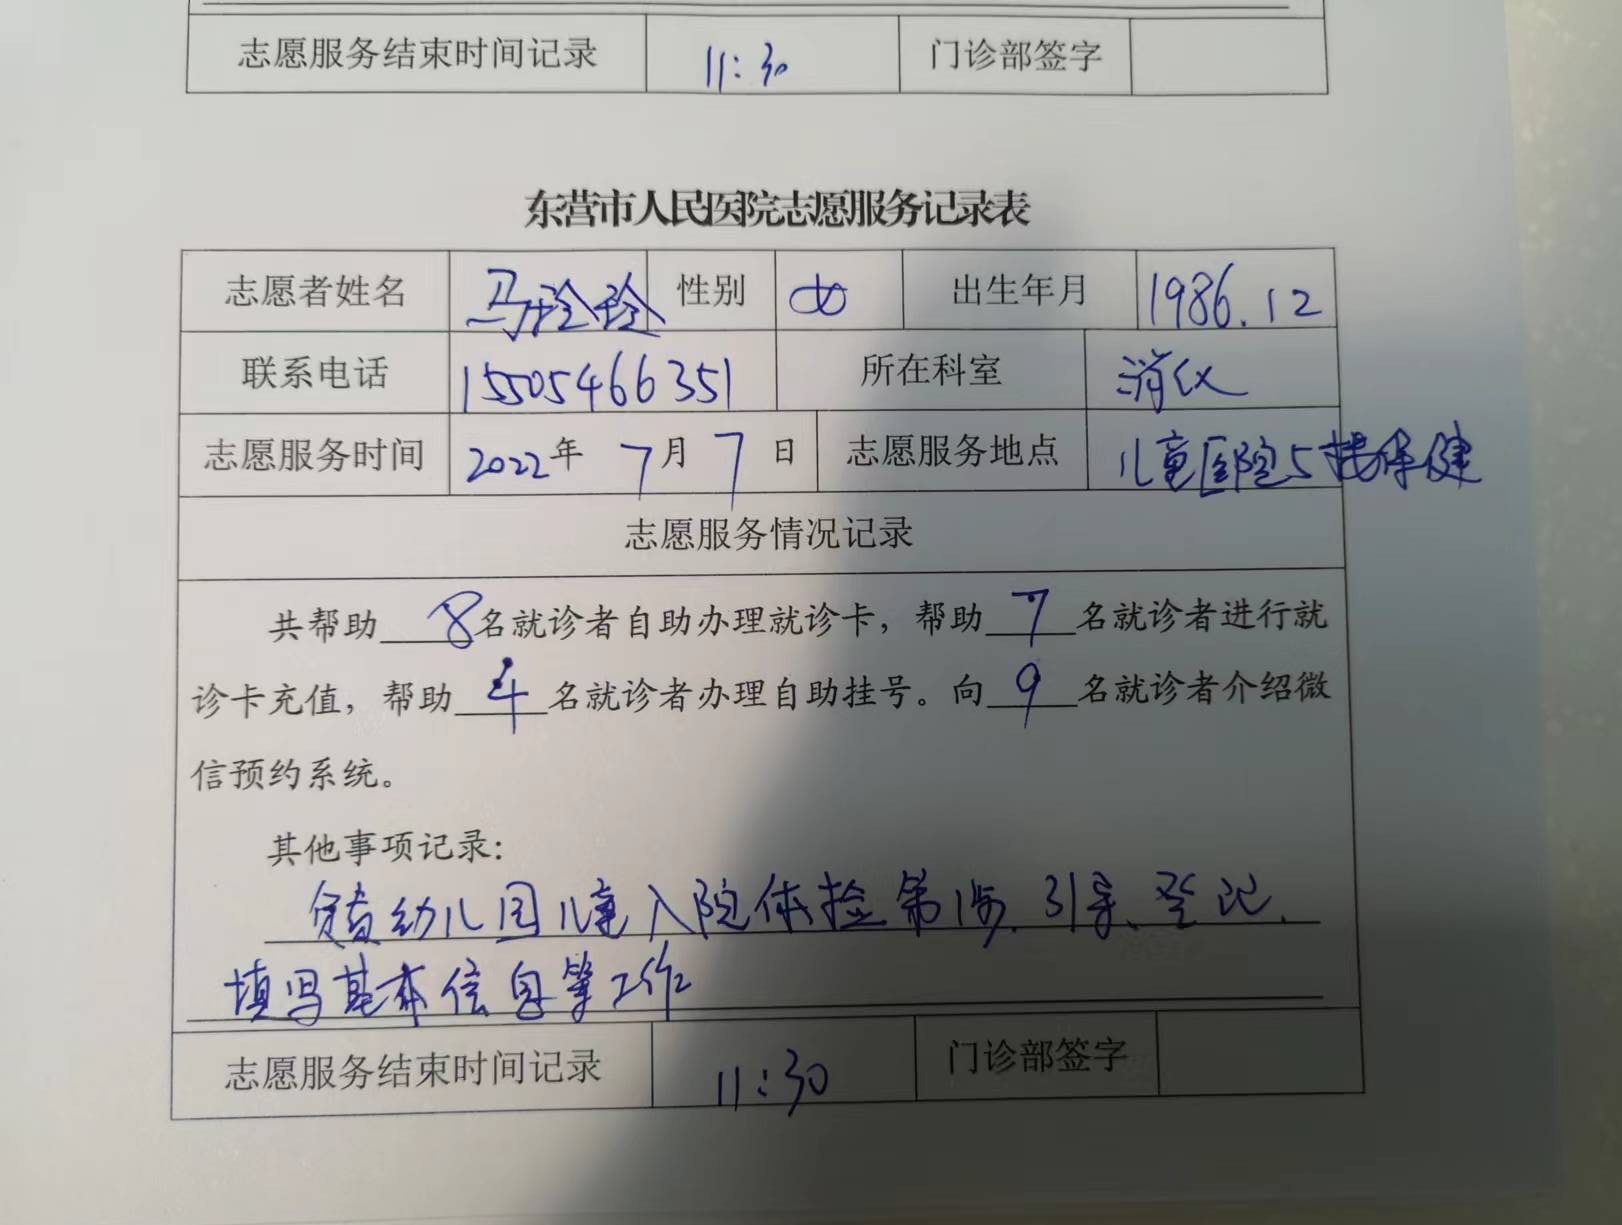 志愿服务结束时间记录 11:30 门诊部签字
东营市人民医院志愿服务记录表
志愿者姓名 马玲玲 性别 女 出生年月 1986.12
联系电话 15505466351 所在科室 消仪
志愿服务时间 2022年 7月 7日 志愿服务地点 儿童医院5楼保健
志愿服务情况记录
共帮助 8 名就诊者自助办理就诊卡，帮助 7 名就诊者进行就
诊卡充值，帮助 4 名就诊者办理自助挂号。向 9 名就诊者介绍微
信预约系统。
其他事项记录：
幼儿园儿童入院体检 引导、登记、
填写基本信息等工作
志愿服务结束时间记录 11:30 门诊部签字